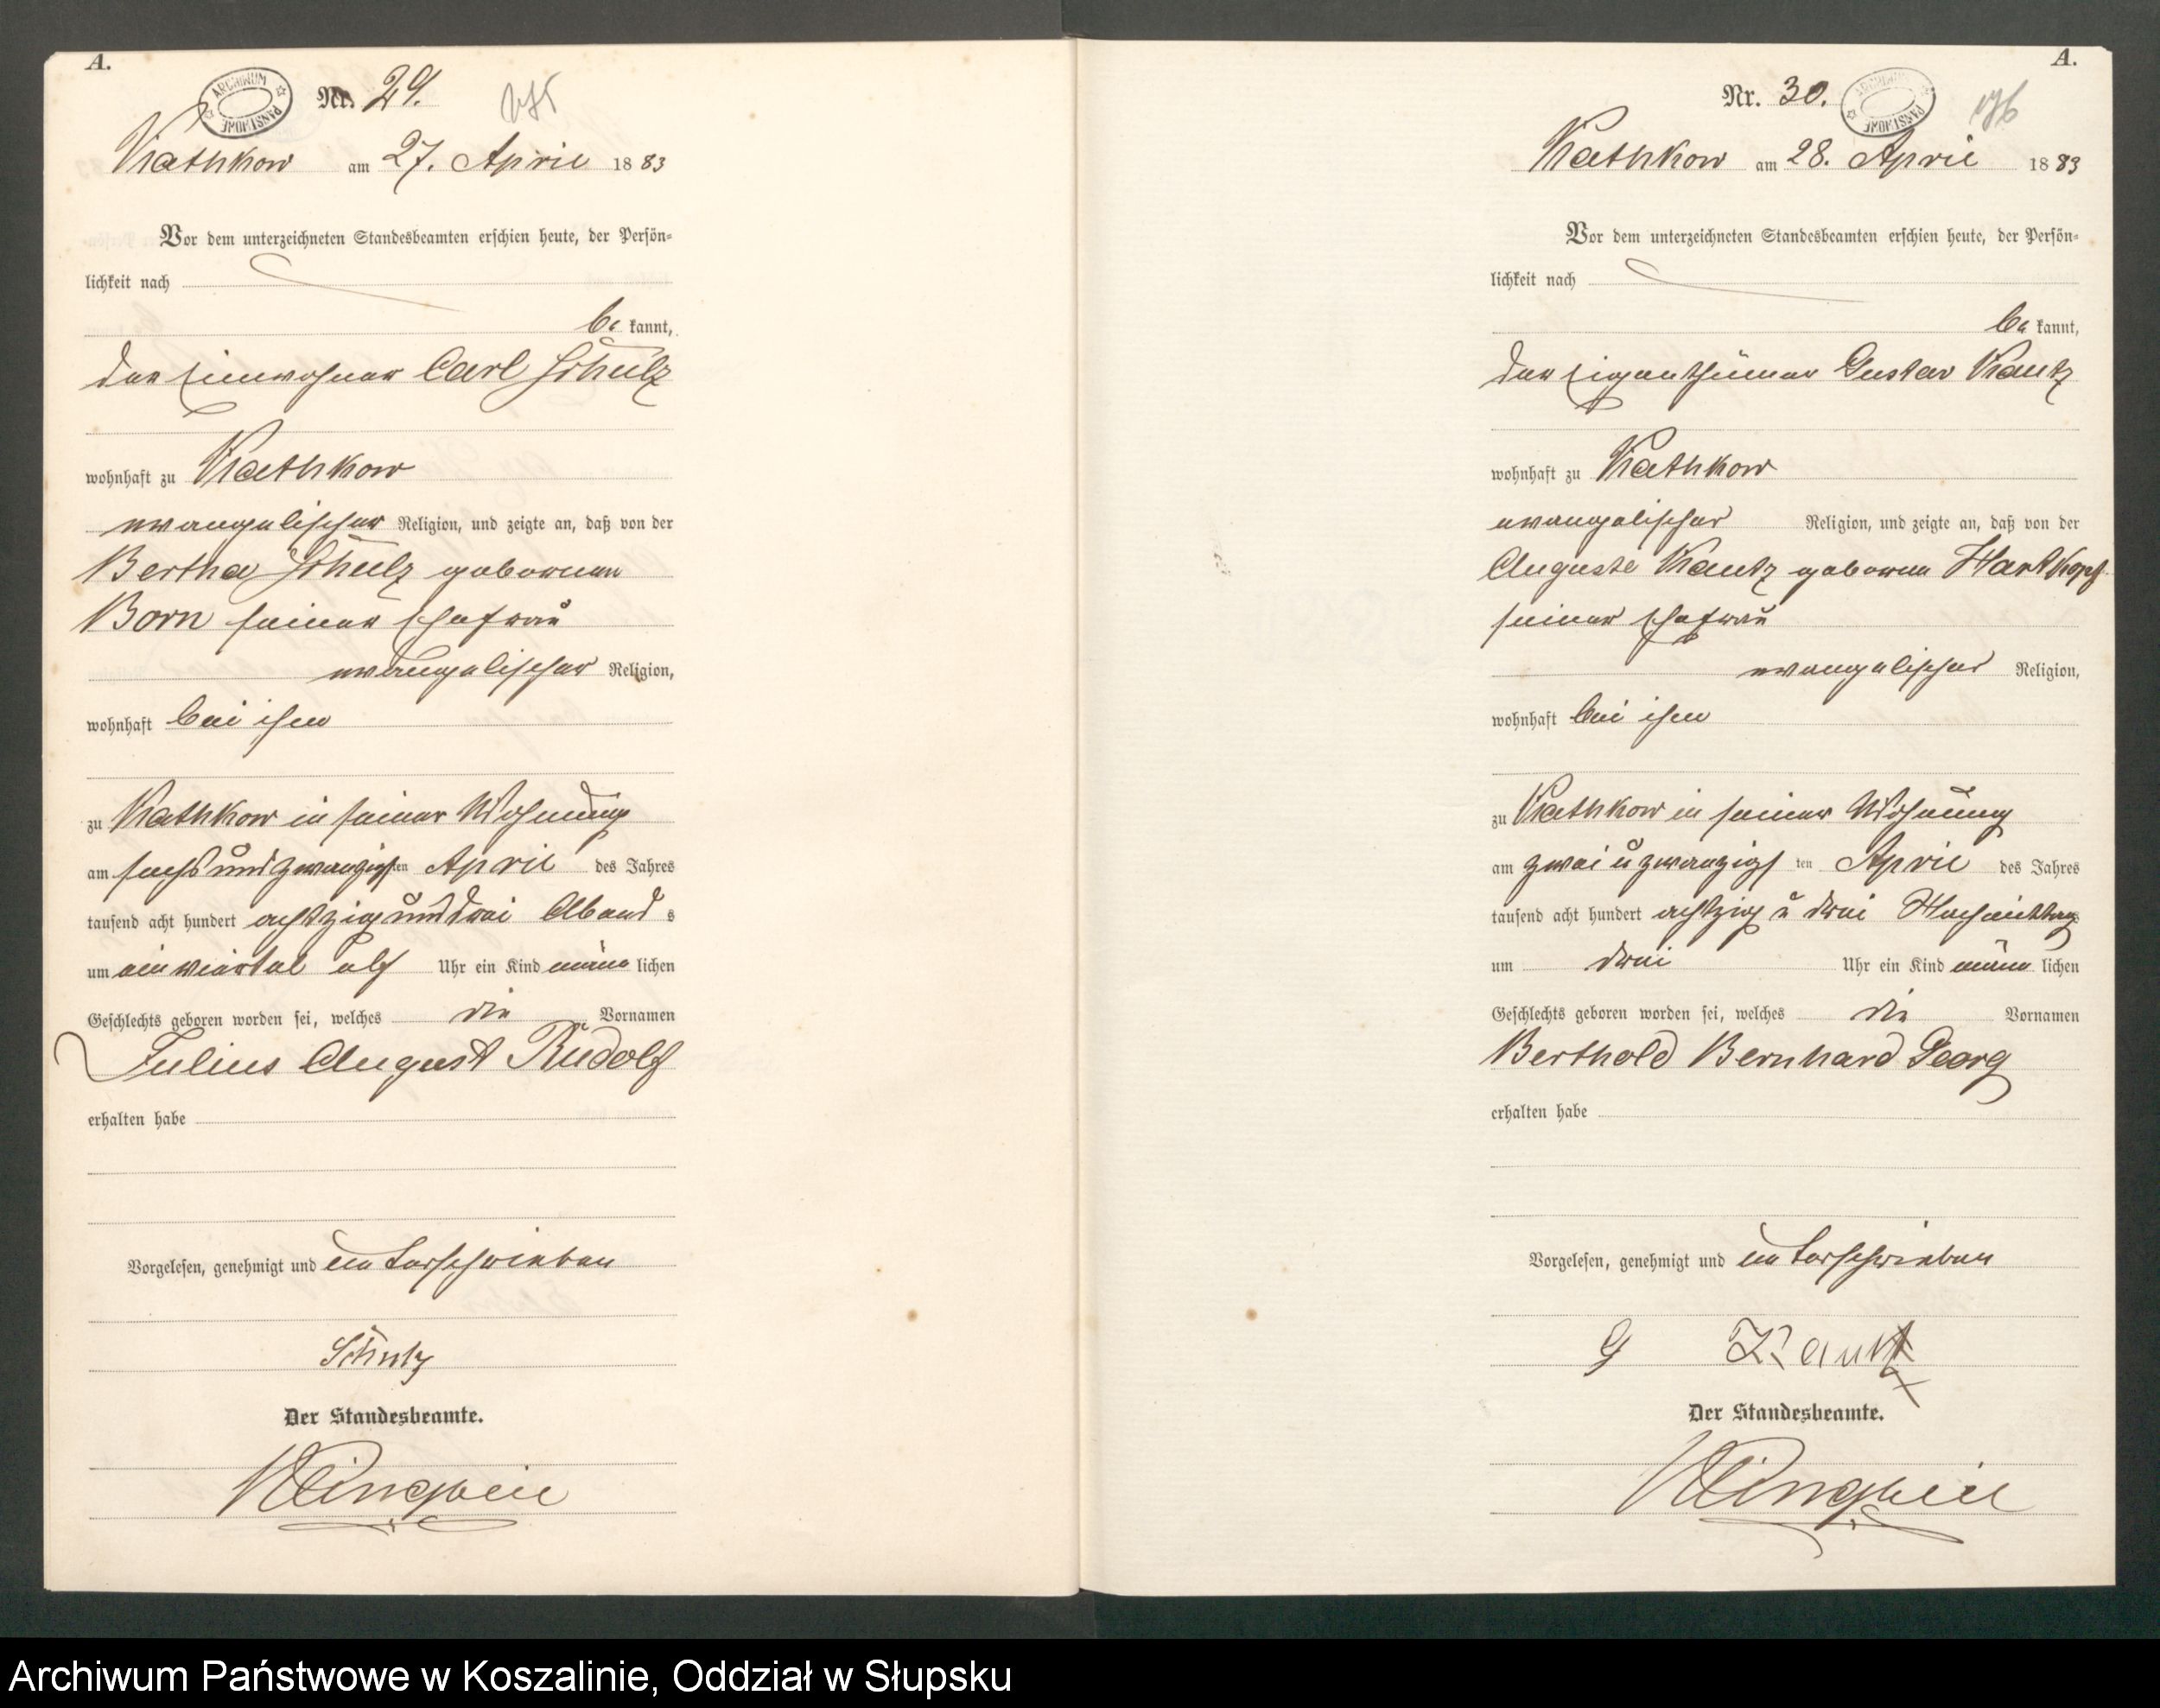 A.
ARCHIWUM PAŃSTWOWE
Nr. 29.
175
Kathkow am 27. April 1883
Vor dem unterzeichneten Standesbeamten erschien heute, der Persön=
lichkeit nach
be kannt,
der Einwohner Carl Schulz
wohnhaft zu Kathkow
evangelischer Religion, und zeigte an, daß von der
Bertha Schulz geborenen
Born seiner Ehefrau
evangelischer Religion,
wohnhaft bei ihm
zu Kathkow in seiner Wohnung
am sechsundzwanzigsten April des Jahres
tausend acht hundert achtzig und drei Abends
um ein viertel elf Uhr ein Kind männlichen
Geschlechts geboren worden sei, welches die Vornamen
Julius August Rudolf
erhalten habe
Vorgelesen, genehmigt und unterschrieben
Schulz
Der Standesbeamte.
A.
Nr. 30.
ARCHIWUM PAŃSTWOWE
176
Kathkow am 28. April 1883
Vor dem unterzeichneten Standesbeamten erschien heute, der Persön=
lichkeit nach
be kannt,
der Eigenthümer Gustav Kautz
wohnhaft zu Kathkow
evangelischer Religion, und zeigte an, daß von der
Auguste Kautz geborne Hartkopf
seiner Ehefrau
evangelischer Religion,
wohnhaft bei ihm
zu Kathkow in seiner Wohnung
am zwei u zwanzigsten April des Jahres
tausend acht hundert achtzig u drei Nachmittags
um drei Uhr ein Kind männlichen
Geschlechts geboren worden sei, welches die Vornamen
Berthold Bernhard Georg
erhalten habe
Vorgelesen, genehmigt und unterschrieben
G Kautz
Der Standesbeamte.
Archiwum Państwowe w Koszalinie, Oddział w Słupsku